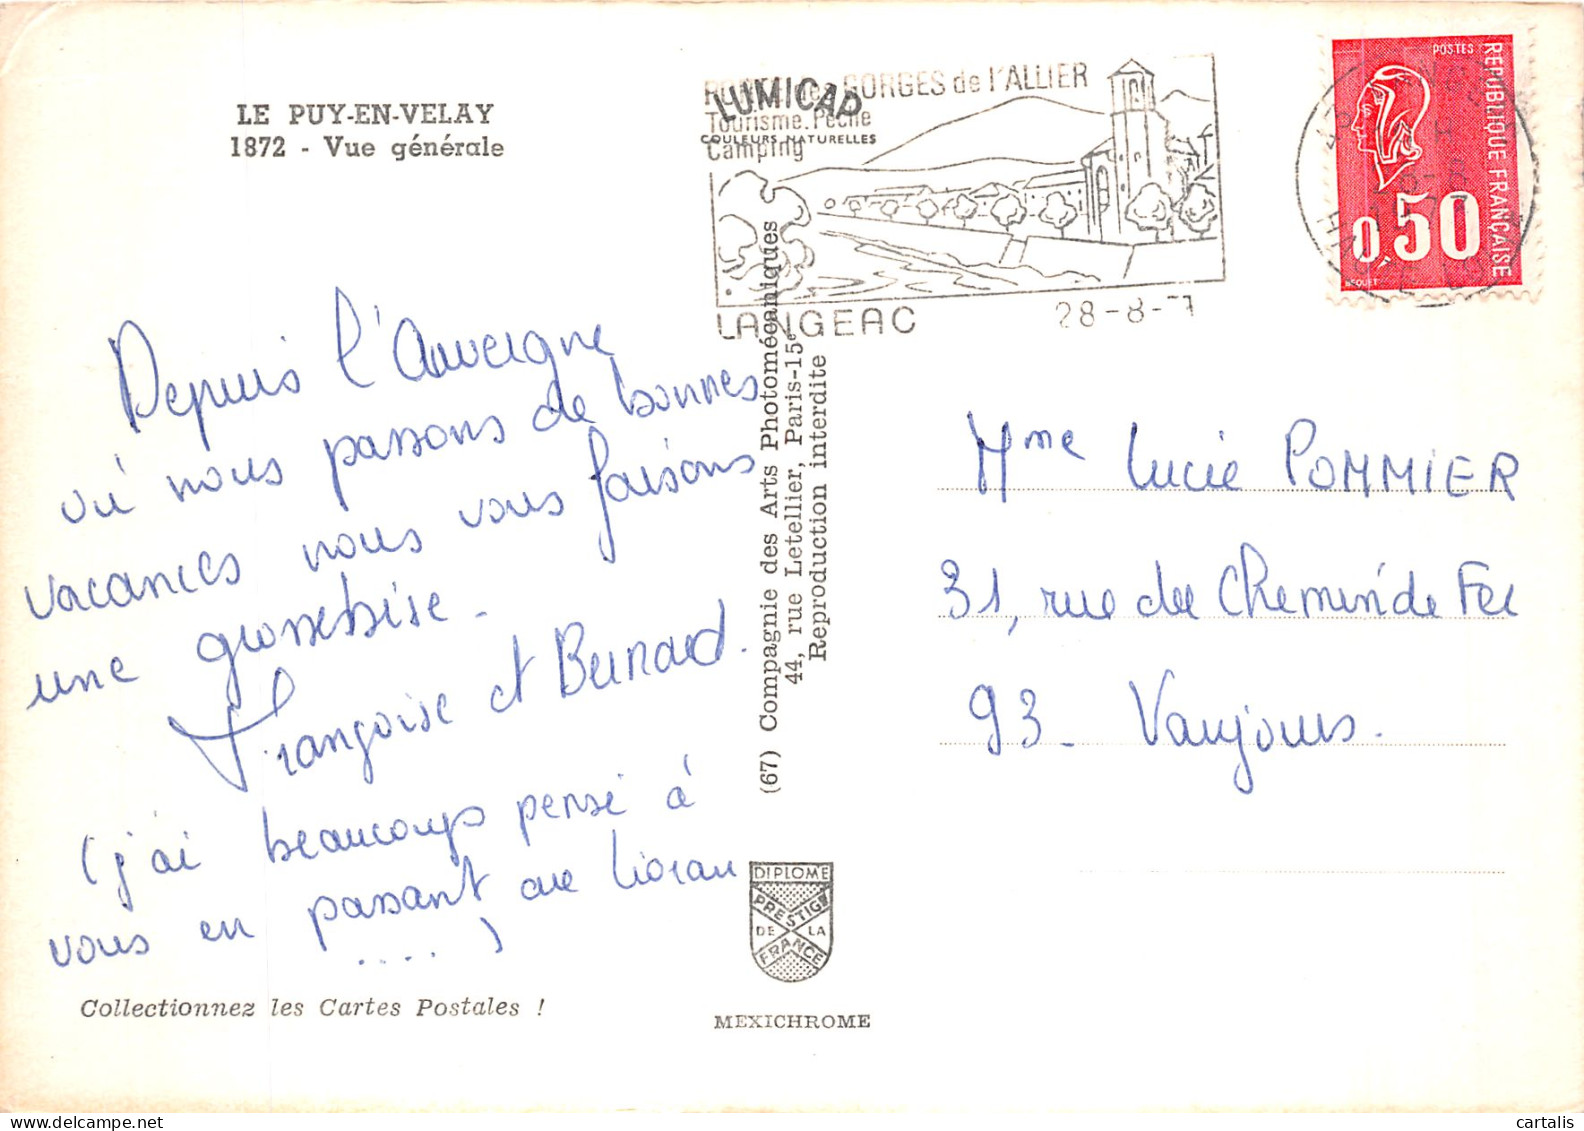 LE PUY-EN-VELAY
1872 - Vue générale
GORGES de l'ALLIER
LUMICAP
Tourisme. Pêche
COULEURS NATURELLES
Camping
LANGEAC
28-8-7
POSTES
REPUBLIQUE FRANÇAISE
0,50
BEQUET
Depuis l'Auvergne
où nous passons de bonnes
vacances nous vous faisons
une grosse bise.
Françoise et Bernard.
(j'ai beaucoup pensé à
vous en passant au Lioran
....)
Collectionnez les Cartes Postales !
(67) Compagnie des Arts Photomécaniques
44, rue Letellier, Paris-15e
Reproduction interdite
DIPLOME
PRESTIGE
DE LA
FRANCE
MEXICHROME
Mme Lucie POMMIER
31, rue du Chemin de Fer
93 - Vaujours.
cartalis